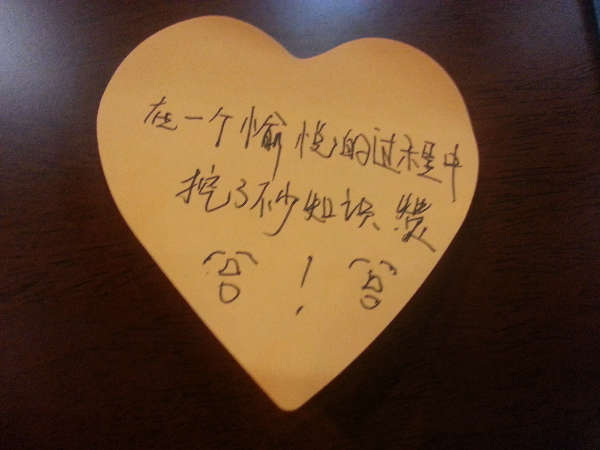 在一个愉悦的过程中
挖了不少知识, 赞
!